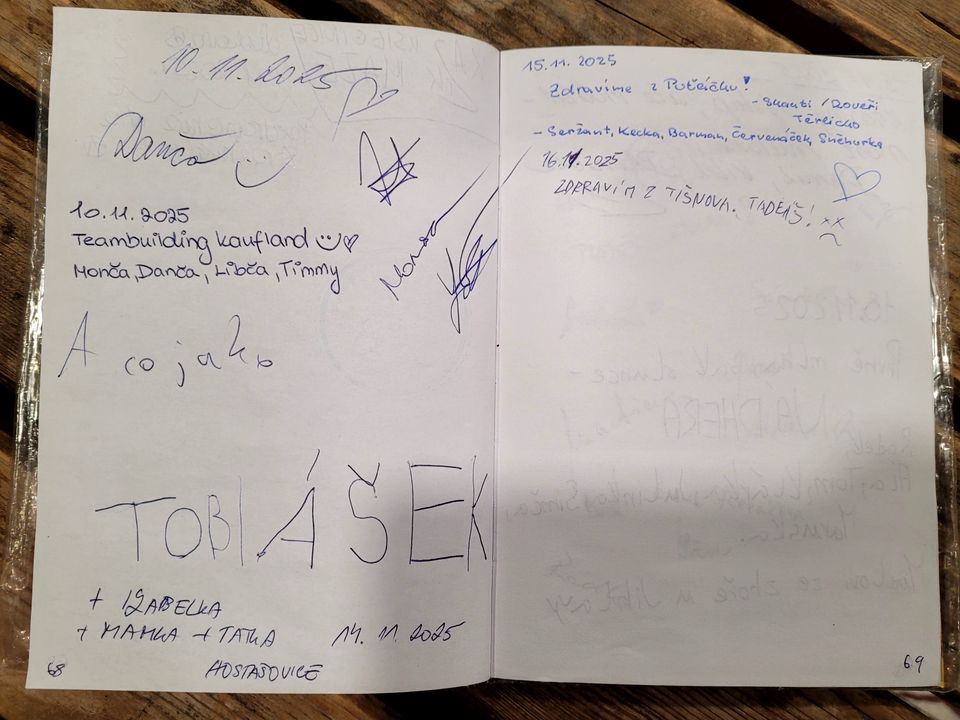 10.11.2025
Danča
10.11.2025
Teambuilding kaufland
Monča, Danča, Libča, Timmy
A co jako
TOBIÁŠEK
+ IZABELKA
+ MAMKA + TAŤKA 14.11.2025
HOSTAŠOVICE
68
15.11.2025
Zdravíme z Putčíčku!
- Skauti / Roveři
Těrlicko
- Seržant, Kecka, Barman, Červenáček, Sněhurka
16.11.2025
ZDRAVÍM Z TIŠNOVA. TADEÁŠ! xx
69